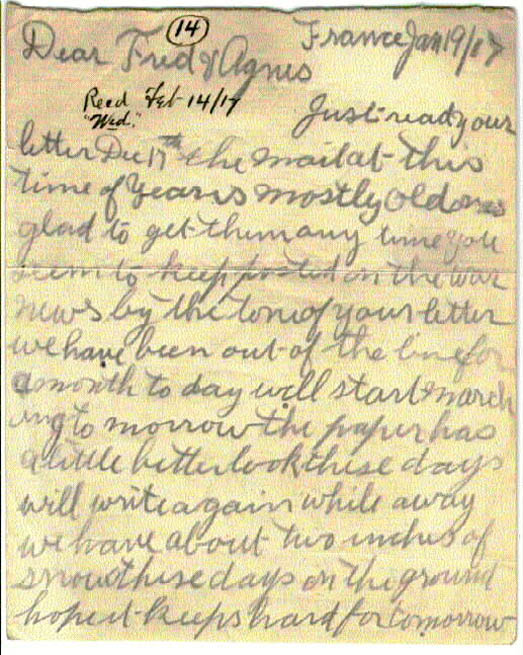 14
France Jan 19/17
Dear Fred & Agnes
Recd Feb 14/17
"Wed."
Just ready our
letter Dec 17th the mail at this
time of year is mostly old
glad to get them any time you
seem to keep posted on the war
news by the tone of your letter
we have been out of the line for
a month to day will start march
ing to morrow the paper has
a little better look these days
will write again while away
we have about two inches of
snow these days on the ground
hope it keeps hard for tomorrow